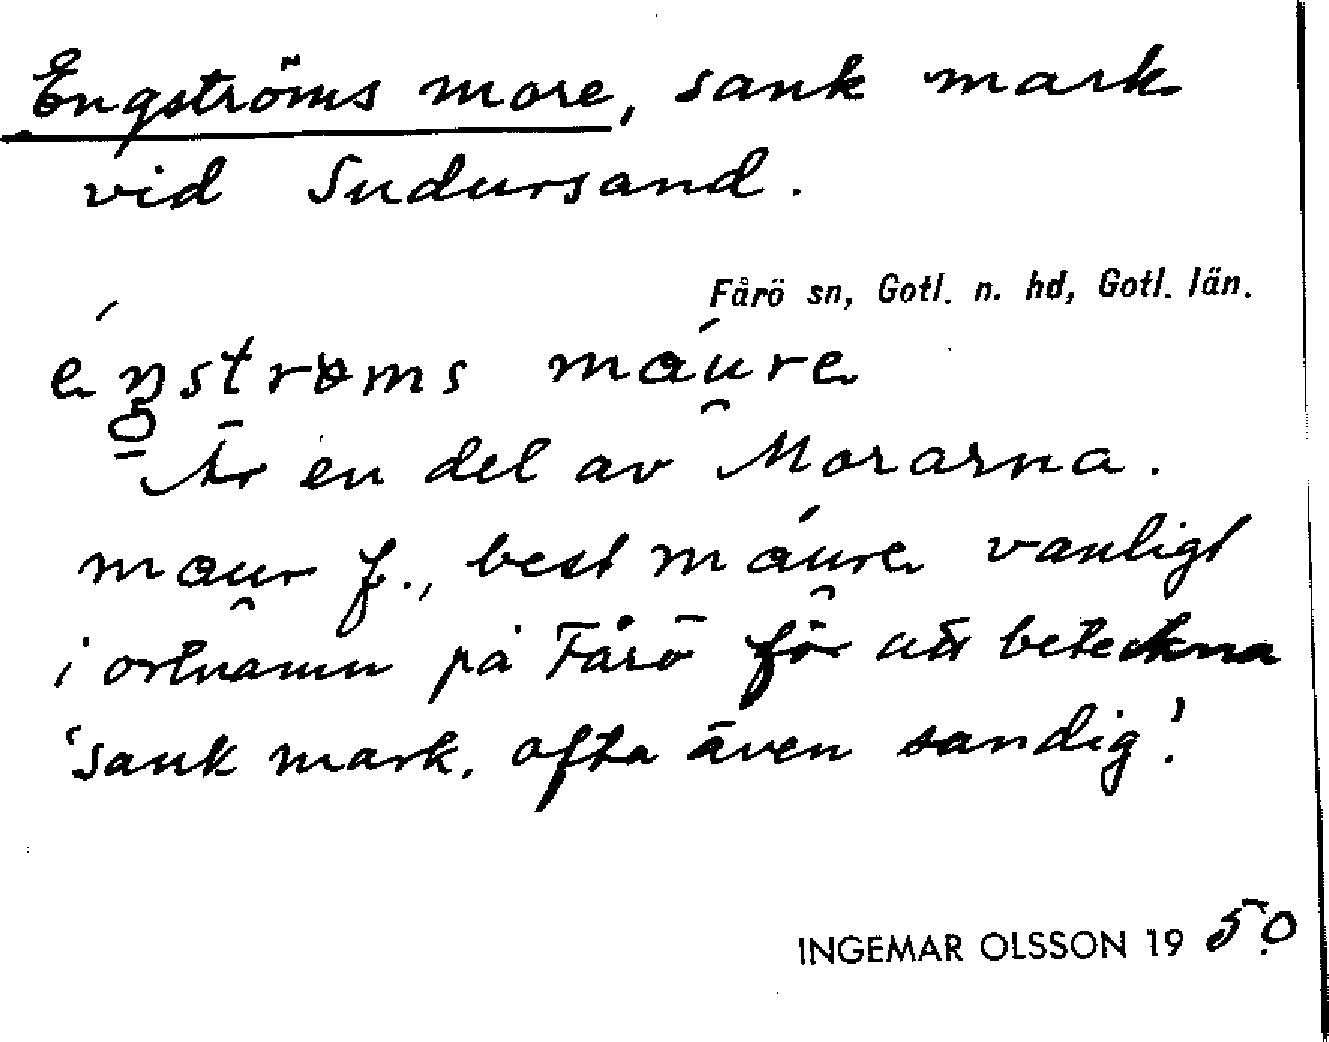 Engströms more, sank mark
vid Sudursand.
Fårö sn, Gotl. n. hd, Gotl. län.
éŋstrøms máu̯re
Är en del av Morarna.
mau̯r f., best máu̯re vanligt
i ortnamn på Fårö för att beteckna
'sank mark, ofta även sandig'.
INGEMAR OLSSON 1950